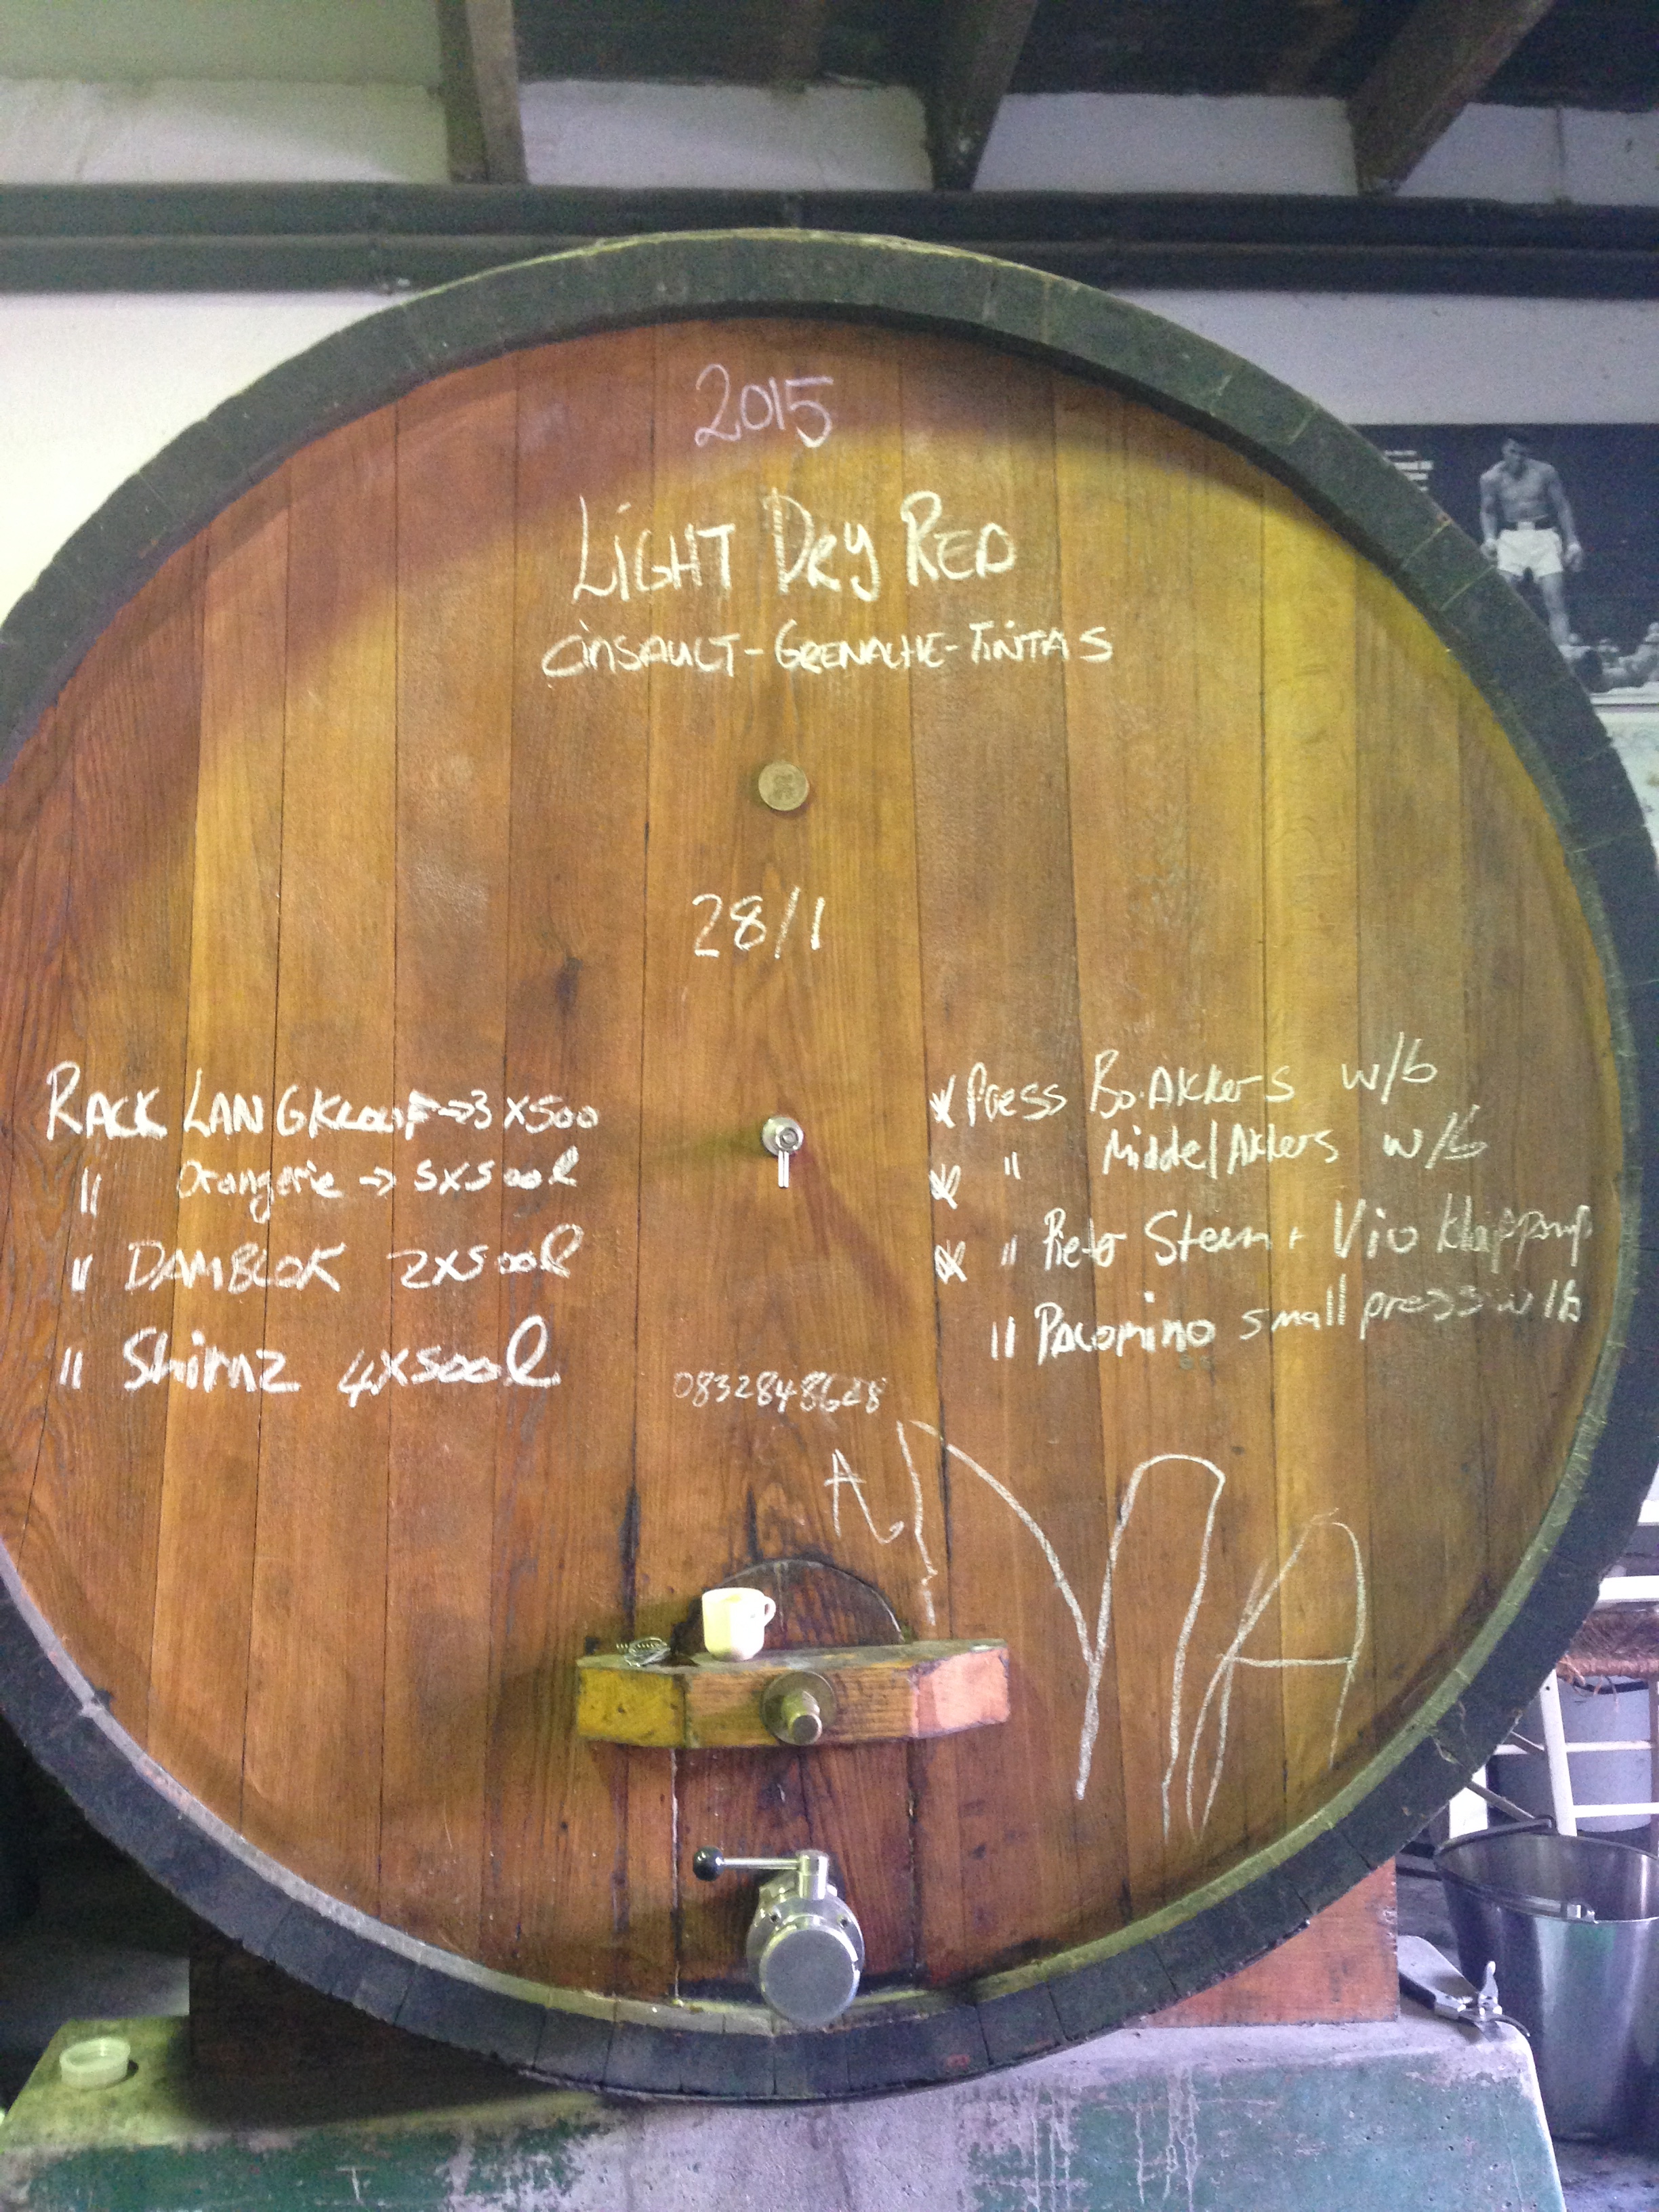 2015
LIGHT DRY RED
CINSAULT-GRENACHE-TINTAS
28/1
RACK LANGKLOOF→3X500
" Orangerie → 5X500l
" DAMBLOK 2X500l
" Shiraz 4X500l
* Press Bo.Akkers w/b
* " MiddelAkkers w/b
* " Steen + Vio klippomp
" Palomino small press w/b
0832848628